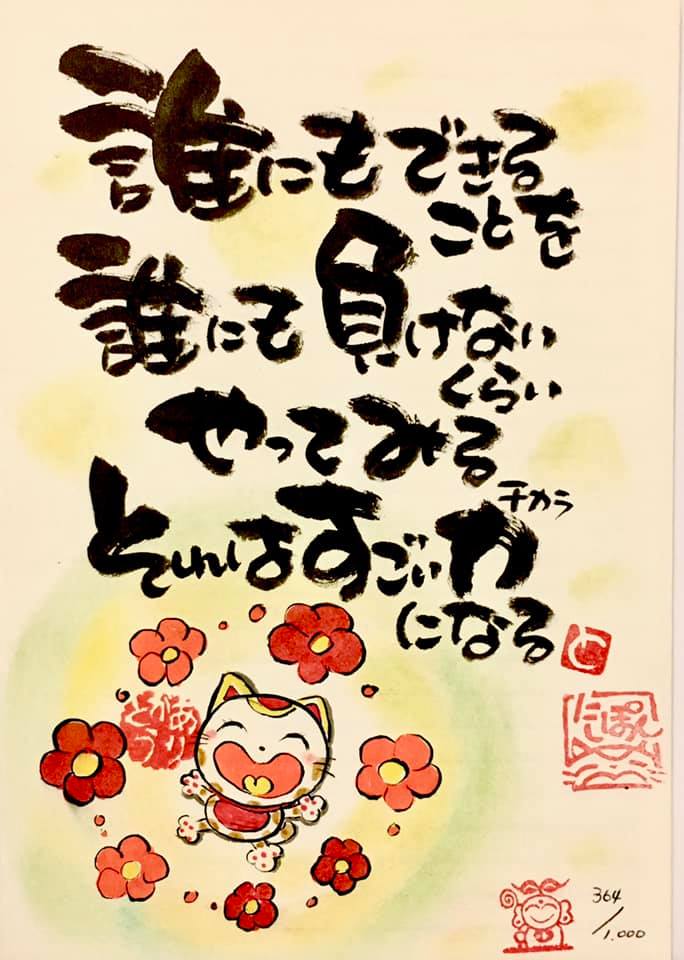 誰にもできる
ことを
誰にも負けない
くらい
やってみる
チカラ
それはすごい力
になる
と
にっぽん
364/1.000